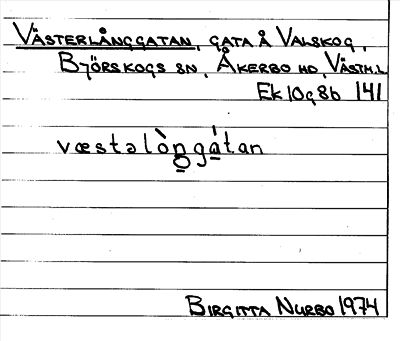 VÄSTERLÅNGGATAN, GATA Å VALSKOG,
BJÖRSKOGS SN, ÅKERBO HD, VÄSTM.L
Ek 10g8b 141
væstəlòn̲gá̲tan
BIRGITTA NURBO 1974